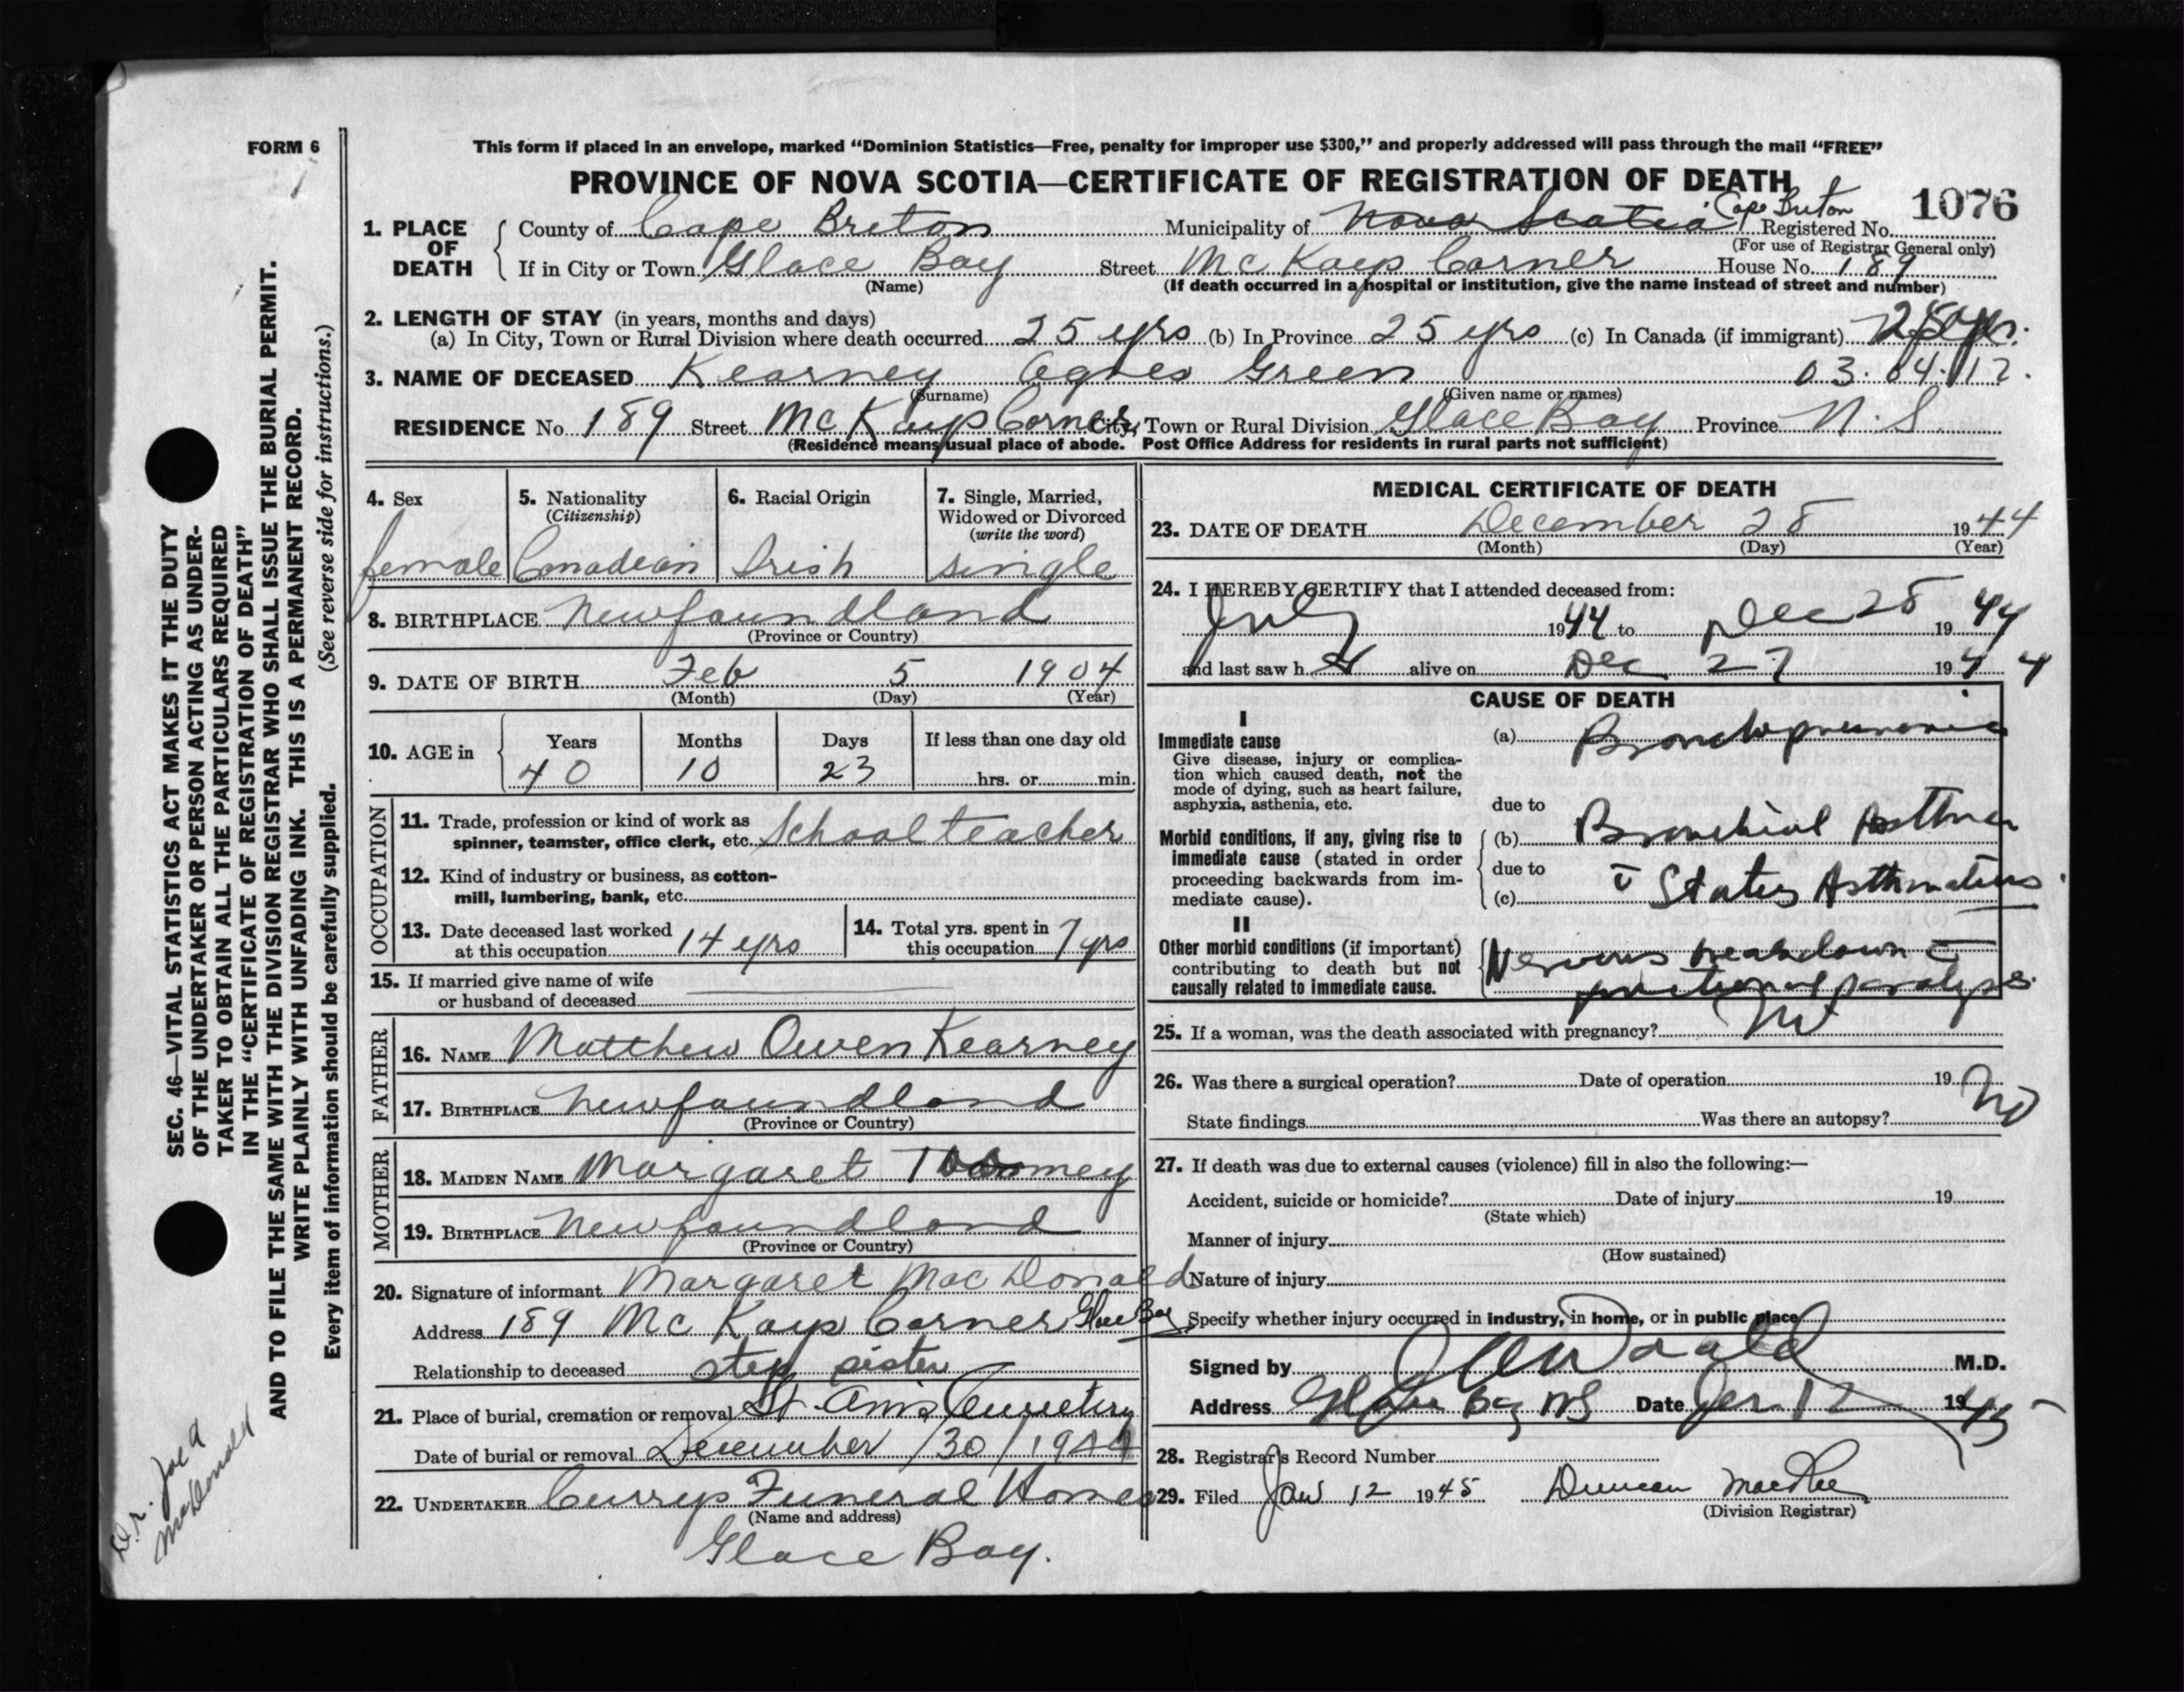 FORM 6
This form if placed in an envelope, marked “Dominion Statistics—Free, penalty for improper use $300,” and properly addressed will pass through the mail “FREE”
PROVINCE OF NOVA SCOTIA—CERTIFICATE OF REGISTRATION OF DEATH
1076
1. PLACE OF DEATH
County of Cape Breton Municipality of Nova Scotia Cape Breton Registered No.
(For use of Registrar General only)
If in City or Town Glace Bay Street McKays Corner House No. 189
(Name) (If death occurred in a hospital or institution, give the name instead of street and number)
2. LENGTH OF STAY (in years, months and days)
(a) In City, Town or Rural Division where death occurred 25 yrs (b) In Province 25 yrs (c) In Canada (if immigrant)
3. NAME OF DECEASED Kearney Agnes Green 03.04.12.
(Surname) (Given name or names)
RESIDENCE No. 189 Street McKays Corner City, Town or Rural Division Glace Bay Province N.S
(Residence means usual place of abode. Post Office Address for residents in rural parts not sufficient)
4. Sex 5. Nationality (Citizenship) 6. Racial Origin 7. Single, Married, Widowed or Divorced (write the word)
female Canadian Irish single
8. BIRTHPLACE Newfoundland
(Province or Country)
9. DATE OF BIRTH Feb 5 1904
(Month) (Day) (Year)
10. AGE in Years Months Days If less than one day old
40 10 23 hrs. or min.
OCCUPATION
11. Trade, profession or kind of work as
spinner, teamster, office clerk, etc. School teacher
12. Kind of industry or business, as cotton-
mill, lumbering, bank, etc.
13. Date deceased last worked
at this occupation 14 yrs
14. Total yrs. spent in
this occupation 7 yrs
15. If married give name of wife
or husband of deceased
FATHER
16. NAME Matthew Owen Kearney
17. BIRTHPLACE Newfoundland
(Province or Country)
MOTHER
18. MAIDEN NAME Margaret
19. BIRTHPLACE Newfoundland
(Province or Country)
20. Signature of informant Margaret MacDonald
Address 189 McKays Corner Glace Bay
Relationship to deceased step sister
21. Place of burial, cremation or removal St. Ann's Cemetery
Date of burial or removal December /30/1944
22. UNDERTAKER Currys Funeral Home
(Name and address)
Glace Bay.
MEDICAL CERTIFICATE OF DEATH
23. DATE OF DEATH December 28 1944
(Month) (Day) (Year)
24. I HEREBY CERTIFY that I attended deceased from:
July 1944 to Dec 28 1944
and last saw h er alive on Dec 27 1944
CAUSE OF DEATH
I
Immediate cause
Give disease, injury or complica-
tion which caused death, not the
mode of dying, such as heart failure,
asphyxia, asthenia, etc.
(a) Bronchopneumonia
due to
Morbid conditions, if any, giving rise to
immediate cause (stated in order
proceeding backwards from im-
mediate cause).
(b) Bronchial Asthma
due to
(c) c̄ Status Asthmaticus.
II
Other morbid conditions (if important)
contributing to death but not
causally related to immediate cause.
Nervous breakdown c̄
functional paralysis.
25. If a woman, was the death associated with pregnancy? No
26. Was there a surgical operation? Date of operation 19
State findings Was there an autopsy? No
27. If death was due to external causes (violence) fill in also the following:—
Accident, suicide or homicide? Date of injury 19
(State which)
Manner of injury
(How sustained)
Nature of injury
Specify whether injury occurred in industry, in home, or in public place
Signed by M.D.
Address Glace Bay NS Date Jan 12 1945
28. Registrar's Record Number
29. Filed Jan 12 1945 Duncan MacRae
(Division Registrar)
SEC. 46—VITAL STATISTICS ACT MAKES IT THE DUTY
OF THE UNDERTAKER OR PERSON ACTING AS UNDER-
TAKER TO OBTAIN ALL THE PARTICULARS REQUIRED
IN THE “CERTIFICATE OF REGISTRATION OF DEATH”
AND TO FILE THE SAME WITH THE DIVISION REGISTRAR WHO SHALL ISSUE THE BURIAL PERMIT.
WRITE PLAINLY WITH UNFADING INK. THIS IS A PERMANENT RECORD.
Every item of information should be carefully supplied. (See reverse side for instructions.)
Dr. Joe A
McDonald